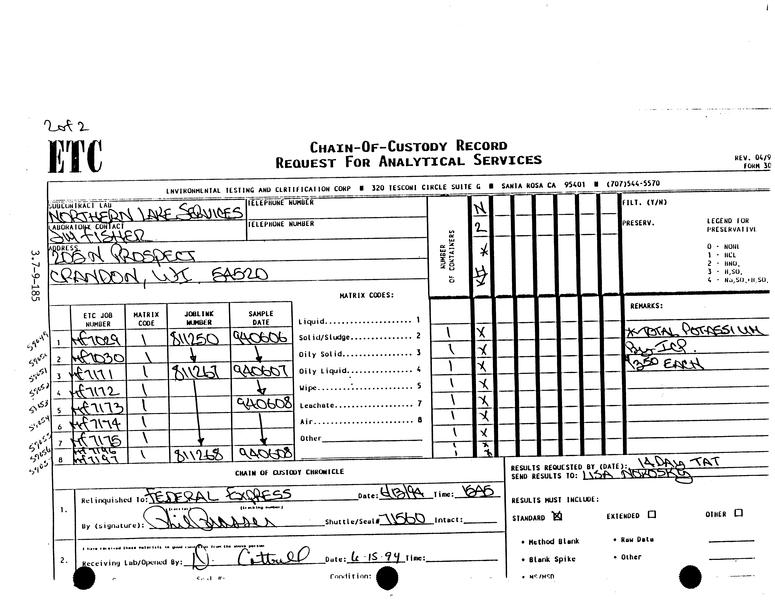 2 of 2
ETC
CHAIN-OF-CUSTODY RECORD
REQUEST FOR ANALYTICAL SERVICES
REV. 04/9
FORM 30
ENVIRONMENTAL TESTING AND CERTIFICATION CORP ■ 320 TESCONI CIRCLE SUITE G ■ SANTA ROSA CA 95401 ■ (707)544-5570
SUBCONTRACT LAB
NORTHERN LAKE SERVICES
TELEPHONE NUMBER
LABORATORY CONTACT
JIM FISHER
TELEPHONE NUMBER
ADDRESS
205 N PROSPECT
CRANDON, WI 54520
3.7-9-185
NUMBER OF CONTAINERS
N
2
*
K
FILT. (Y/N)
PRESERV.
LEGEND FOR
PRESERVATIVE
0 - NONE
1 - HCL
2 - HNO,
3 - H,SO,
MATRIX CODES:
Liquid 1
Solid/Sludge 2
Oily Solid 3
Oily Liquid 4
Wipe 5
Leachate 7
Air 8
Other
ETC JOB NUMBER MATRIX CODE JOBLINK NUMBER SAMPLE DATE
1 MF7029 1 811250 940606 1 X
2 MF7030 1 1 X
3 MF7171 1 811267 940607 1 X
4 MF7172 1 1 X
5 MF7173 1 940608 1 X
6 MF7174 1 1 X
7 MF7175 1 1 X
8 MF7197 1 811268 940608 1 X
REMARKS:
*TOTAL POTASSIUM
By ICP.
EACH
CHAIN OF CUSTODY CHRONICLE
RESULTS REQUESTED BY (DATE): 14 DAY TAT
SEND RESULTS TO: LISA NOROSKY
1. Relinquished To: FEDERAL EXPRESS Date: 6/13/94 Time: 1545
By (signature): Shuttle/Seal# 71560 Intact:
RESULTS MUST INCLUDE:
STANDARD ☒ EXTENDED ☐ OTHER ☐
• Method Blank • Raw Data
• Blank Spike • Other
• MS/MSD
2. I have received these materials in good condition from the above person
Receiving Lab/Opened By: D. Cottrell Date: 6-15-94 Time:
Condition: